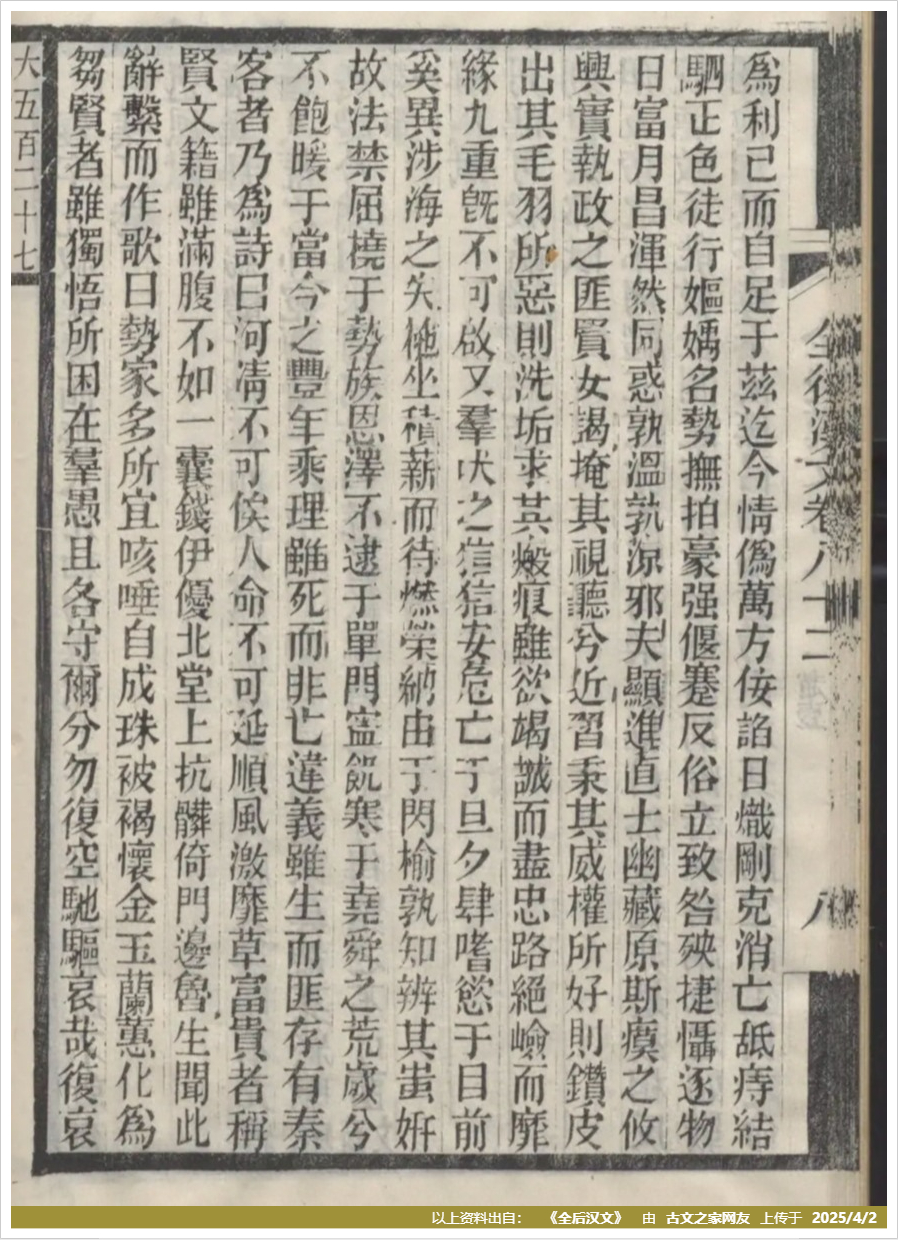 全後漢文卷八十二 八
爲利己而自足于茲迄今情僞萬方佞諂日熾剛克消亡舐痔結
駟正色徒行嫗㜖名勢撫拍豪强偃蹇反俗立致咎殃捷懾逐物
日富月昌渾然同惑孰溫孰涼邪夫顯進直士幽藏原斯瘼之攸
興實執政之匪賢女謁掩其視聽兮近習秉其威權所好則鑽皮
出其毛羽所惡則洗垢求其瘢痕雖欲竭誠而盡忠路絕嶮而靡
緣九重旣不可啟又羣吠之狺狺安危亡于旦夕肆嗜慾于目前
奚異涉海之失柂坐積薪而待燃榮納由于閃榆孰知辨其蚩妍
故法禁屈橈于勢族恩澤不逮于單門寧飢寒于堯舜之荒歲兮
不飽暖于當今之豐年乘理雖死而非亡違義雖生而匪存有秦
客者乃爲詩曰河清不可俟人命不可延順風激靡草富貴者稱
賢文籍雖滿腹不如一囊錢伊優北堂上抗髒倚門邊魯生聞此
辭繫而作歌曰勢家多所宜咳唾自成珠被褐懷金玉蘭蕙化爲
芻賢者雖獨悟所困在羣愚且各守爾分勿復空馳驅哀哉復哀
大五百二十七
以上资料出自： 《全后汉文》 由 古文之家网友 上传于 2025/4/2